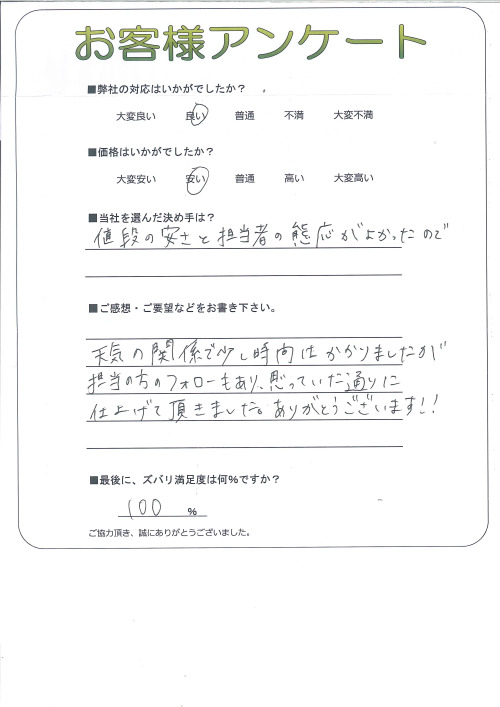 お客様アンケート
■弊社の対応はいかがでしたか？
大変良い 良い 普通 不満 大変不満
■価格はいかがでしたか？
大変安い 安い 普通 高い 大変高い
■当社を選んだ決め手は？
値段の安さと担当者の熊応がよかったので
■ご感想・ご要望などをお書き下さい。
天気の関係で少し時間はかかりましたが
担当の方のフォローもあり、思っていた通りに
仕上げて頂きました。ありがとうございます!!
■最後に、ズバリ満足度は何%ですか？
100 %
ご協力頂き、誠にありがとうございました。